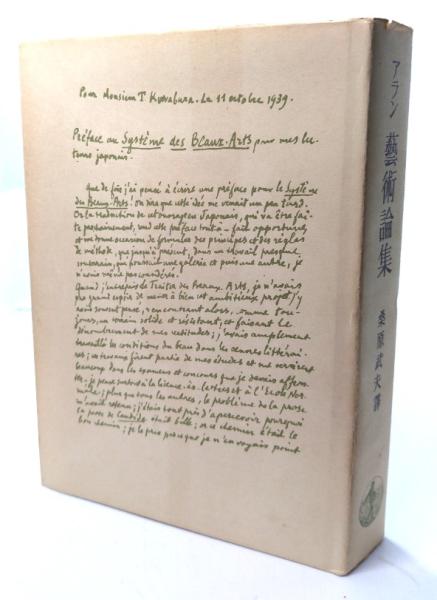 Pour Monsieur T. Kuwabara. Le 11 octobre 1939.
Préface au Système des Beaux-Arts pour mes lec-
teurs japonais.
Que de fois j'ai pensé à écrire une préface pour le Système
des Beaux-Arts! On dira que cette idée me venait un peu tard.
Or la traduction de cet ouvrage en Japonais, qui va être fai-
te prochainement, rend cette préface tout à fait opportune,
et me donne occasion de formuler des principes et des règles
de méthode, que jusqu'à présent, dans un travail presque
souterrain, qui poussait une galerie et puis une autre, je
n'avais même pas considérés!
Quand j'entrepris le Traité des Beaux-Arts, je n'avais
pas grand espoir de mener à bien cet ambitieux projet. J'y
avais souvent pensé, rencontrant alors, comme tou-
jours, un terrain solide et résistant, et faisant le
dénombrement de mes certitudes; j'avais amplement
travaillé les conditions du beau dans les œuvres littérai-
res; cela faisait partie de mes études et me servirent
beaucoup dans les examens et concours que je devais affron-
ter. Je pense surtout à la licence-ès-lettres et à l'École Nor-
male; plus que tous les autres, le problème de la prose
m'avait retenu; j'étais tout près d'apercevoir pourquoi
la prose de Candide était belle; or ce chemin était le
bon chemin; je le pris parce que je n'en voyais point
アラン 藝術論集
桑原武夫譯